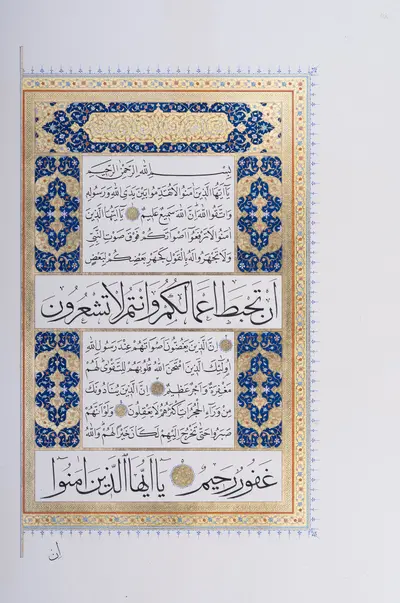 بِسْمِ اللهِ الرَّحْمٰنِ الرَّحِيمِ
يَا اَيُّهَا الَّذِينَ اٰمَنُوا لَا تُقَدِّمُوا بَيْنَ يَدَيِ اللهِ وَرَسُولِهِ
وَاتَّقُوا اللهَ اِنَّ اللهَ سَمِيعٌ عَلِيمٌ ۝ يَا اَيُّهَا الَّذِينَ
اٰمَنُوا لَا تَرْفَعُوا اَصْوَاتَكُمْ فَوْقَ صَوْتِ النَّبِيِّ
وَلَا تَجْهَرُوا لَهُ بِالْقَوْلِ كَجَهْرِ بَعْضِكُمْ لِبَعْضٍ
اَنْ تَحْبَطَ اَعْمَالُكُمْ وَاَنْتُمْ لَا تَشْعُرُونَ
۝ اِنَّ الَّذِينَ يَغُضُّونَ اَصْوَاتَهُمْ عِنْدَ رَسُولِ اللهِ
اُولٰئِكَ الَّذِينَ امْتَحَنَ اللهُ قُلُوبَهُمْ لِلتَّقْوٰى لَهُمْ
مَغْفِرَةٌ وَاَجْرٌ عَظِيمٌ ۝ اِنَّ الَّذِينَ يُنَادُونَكَ
مِنْ وَرَاءِ الْحُجُرَاتِ اَكْثَرُهُمْ لَا يَعْقِلُونَ ۝ وَلَوْ اَنَّهُمْ
صَبَرُوا حَتّٰى تَخْرُجَ اِلَيْهِمْ لَكَانَ خَيْرًا لَهُمْ وَاللهُ
غَفُورٌ رَحِيمٌ ۝ يَا اَيُّهَا الَّذِينَ اٰمَنُوا
اِنْ